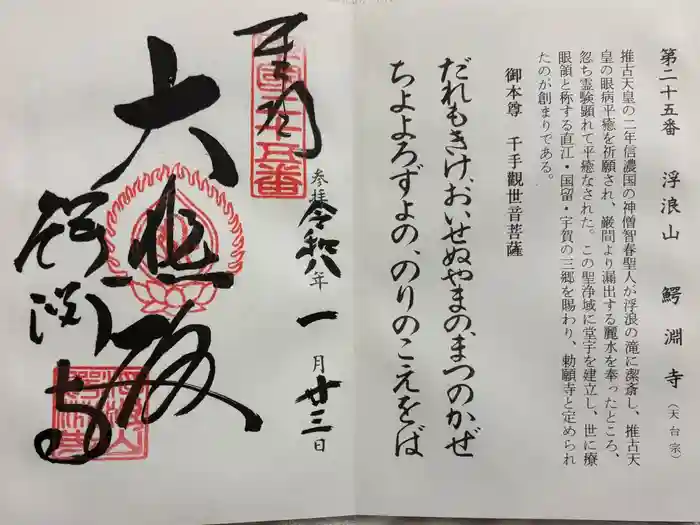 第二十五番 浮浪山 鰐淵寺（天台宗）
推古天皇の二年信濃国の神僧智春聖人が浮浪の滝に潔斎し、推古天
皇の眼病平癒を祈願され、巌間より漏出する麗水を奉ったところ、
忽ち霊験顕れて平癒なされた。この聖浄域に堂宇を建立し、世に療
眼領と称する直江・国留・宇賀の三郷を賜わり、勅願寺と定められ
たのが創まりである。
御本尊 千手觀世音菩薩
だれもきけ、おいせぬやまの、まつのかぜ
ちよよろずよの、のりのこえをば
参拝 令和八年 一月 廿三日
奉拝
大悲殿
鰐淵寺